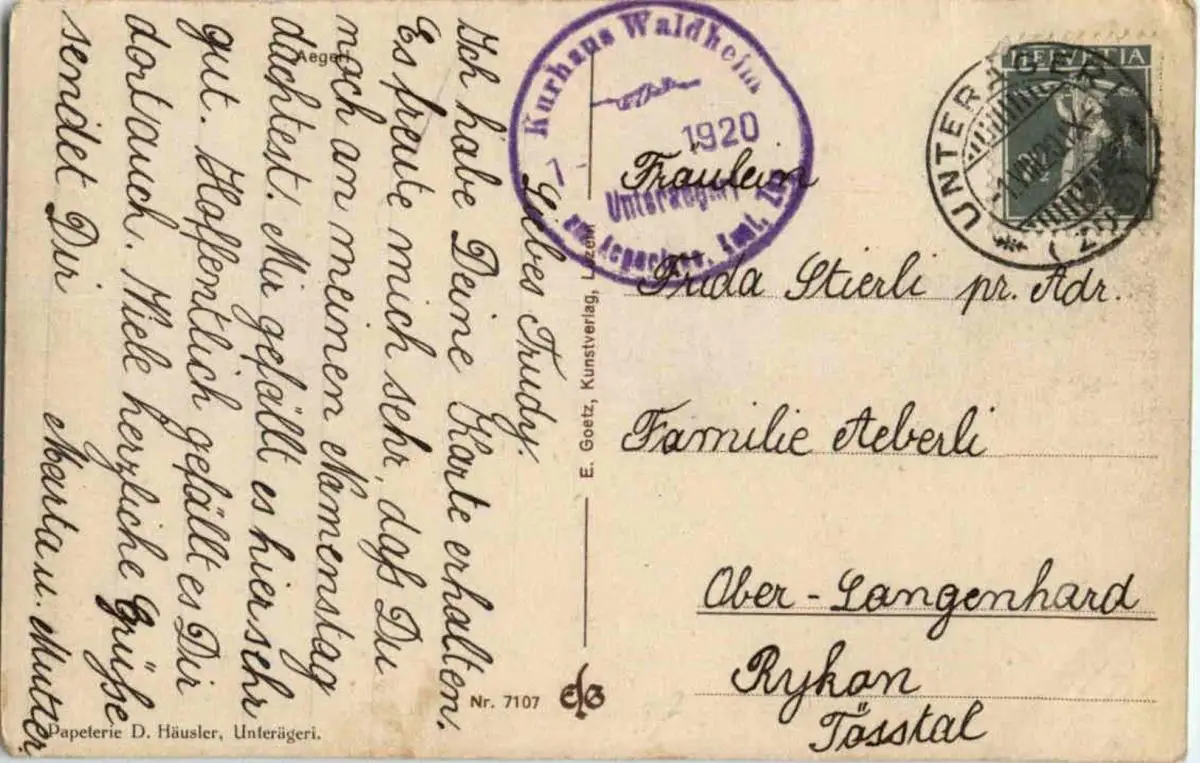 Liebes Trudy.
Ich habe Deine Karte erhalten.
Es freute mich sehr, daß Du
noch an meinen Namenstag
dachtest. Mir gefällt es hier sehr
gut. Hoffentlich gefällt es Dir
dort auch. Viele herzliche Grüße
sendet Dir
Marta u. Mutter.
Aegeri
Papeterie D. Häusler, Unterägeri.
Nr. 7107
E. Goetz, Kunstverlag, Luzern
Kurhaus Waldheim
1920
Unterägeri
HELVETIA
UNTERÄGERI
(ZUG)
Fräulein
Frida Stierli pr. Adr.
Familie Aeberli
Ober-Langenhard
Rykon
Tösstal